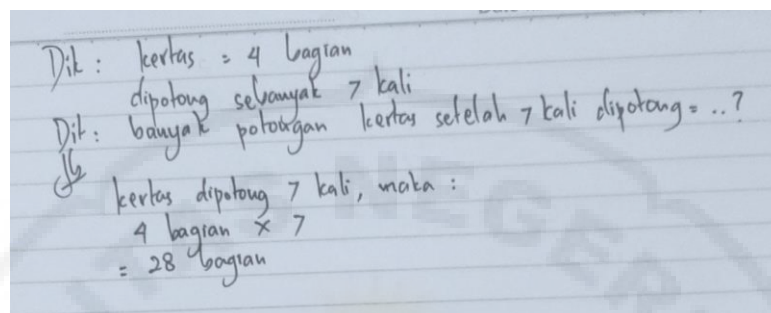 Dik : kertas = 4 bagian
dipotong sebanyak 7 kali
Dit : banyak potongan kertas setelah 7 kali dipotong = ..?
Jb
kertas dipotong 7 kali, maka :
4 bagian x 7
= 28 bagian